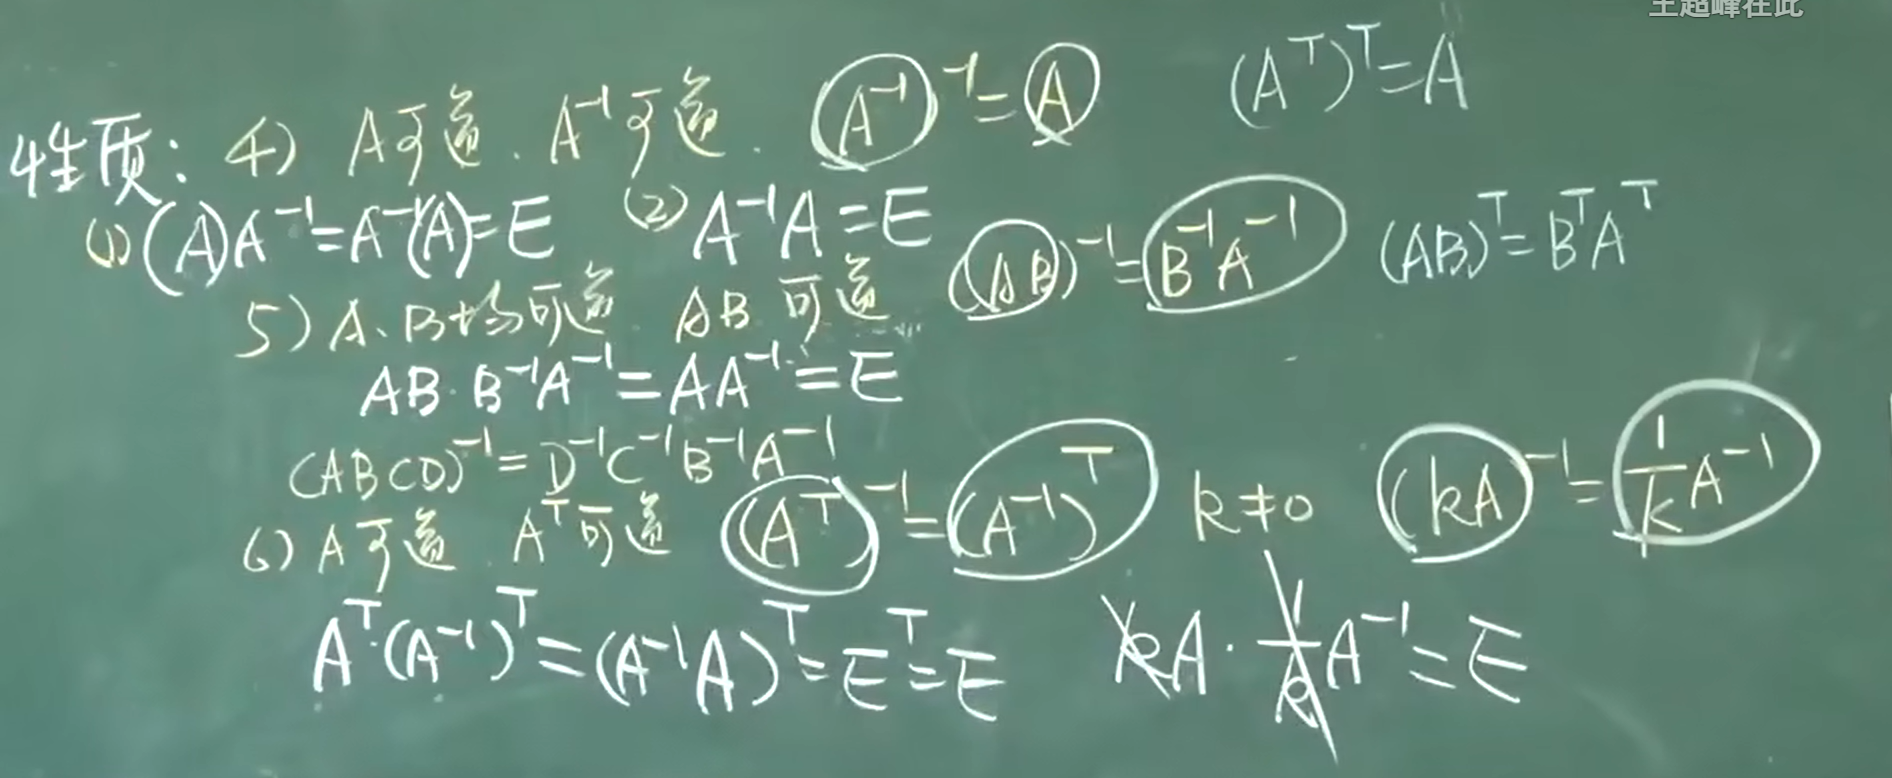 王超峰在此
性质: 4) A可逆. A⁻¹可逆. (A⁻¹)⁻¹=A (Aᵀ)ᵀ=A
(1) (A)A⁻¹=A⁻¹(A)=E (2) A⁻¹A=E
5) A、B均可逆 AB可逆 (AB)⁻¹=B⁻¹A⁻¹ (AB)ᵀ=BᵀAᵀ
AB·B⁻¹A⁻¹=AA⁻¹=E
(ABCD)⁻¹=D⁻¹C⁻¹B⁻¹A⁻¹
6) A可逆 Aᵀ可逆 (Aᵀ)⁻¹=(A⁻¹)ᵀ k≠0 (kA)⁻¹=1/k A⁻¹
Aᵀ·(A⁻¹)ᵀ=(A⁻¹A)ᵀ=Eᵀ=E kA·1/k A⁻¹=E